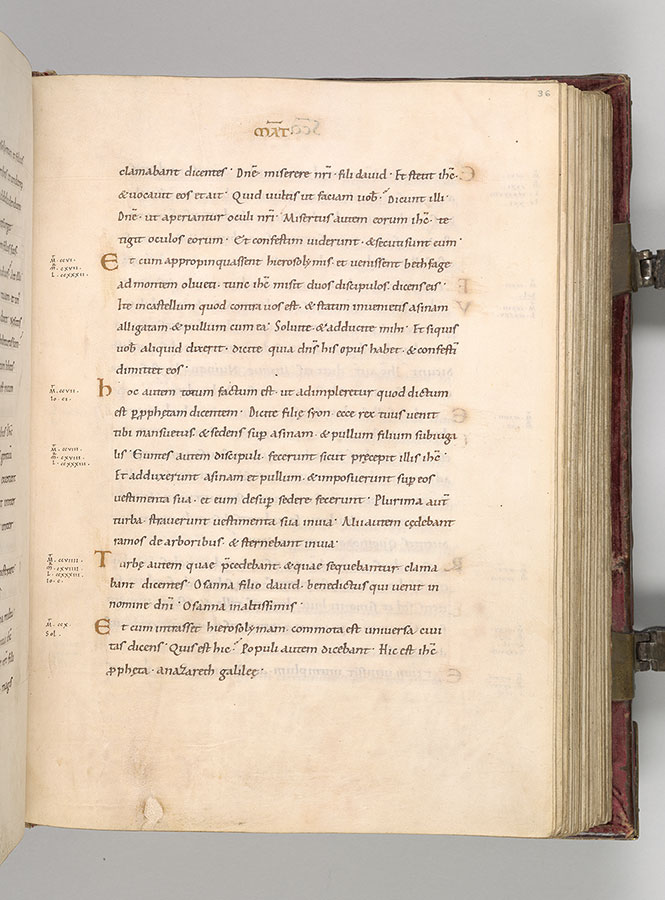 36
MAT
clamabant dicentes· Dnē miserere nr̄i· fili david· Et stetit ihc̄·
& vocavit eos et ait· Quid vultis ut faciam vob̄· Dicunt illi
Dnē· ut aperiantur oculi nr̄i· Misertus autem eorum ihc̄· te
tigit oculos eorum· Et confestim viderunt· & secuti sunt eum·
Et cum appropinquassent hierosolymis· et venissent bethfage
ad montem oliveti· tunc ihc̄ misit duos discipulos dicens eis·
Ite in castellum quod contra vos est· & statim invenietis asinam
alligatam & pullum cum ea· Solvite· & adducite mihi· Et si quis
vob̄ aliquid dixerit· dicite quia dn̄s his opus habet· & confestī
dimittet eos·
hoc autem totum factum est· ut adimpleretur quod dictum
est p̱ ꝓphetam dicentem· Dicite filię syon· ecce rex tuus venit
tibi mansuetus· & sedens sup̄ asinam· & pullum filium subiuga
lis· Euntes autem discipuli· fecerunt sicut pręcepit illis ihc̄·
Et adduxerunt asinam et pullum· & imposuerunt sup̄ eos
vestimenta sua· et eum desup̄ sedere fecerunt· Plurima aut̄
turba· straverunt vestimenta sua in via· Alii autem cędebant
ramos de arboribus· & sternebant in via·
Turbę autem quae p̄cedebant· & quae sequebantur· clama
bant dicentes· Osanna filio david· benedictus qui venit in
nomine dn̄i· Osanna in altissimis·
Et cum intrasset hierosolymam· commota est universa civi
tas dicens· Quis est hic· Populi autem dicebant· Hic est ihc̄
ꝓpheta· a nazareth galileę·
M̄. ccvi.
M̄. cxvii.
L. ccxxxii.
M̄. ccvii.
Io. ci.
M̄. ccviii.
M̄. cxviii.
L. ccxxxiii.
M̄. ccviiii.
L. ccxxxiiii.
Io. c.
M̄. ccx.
Sol.